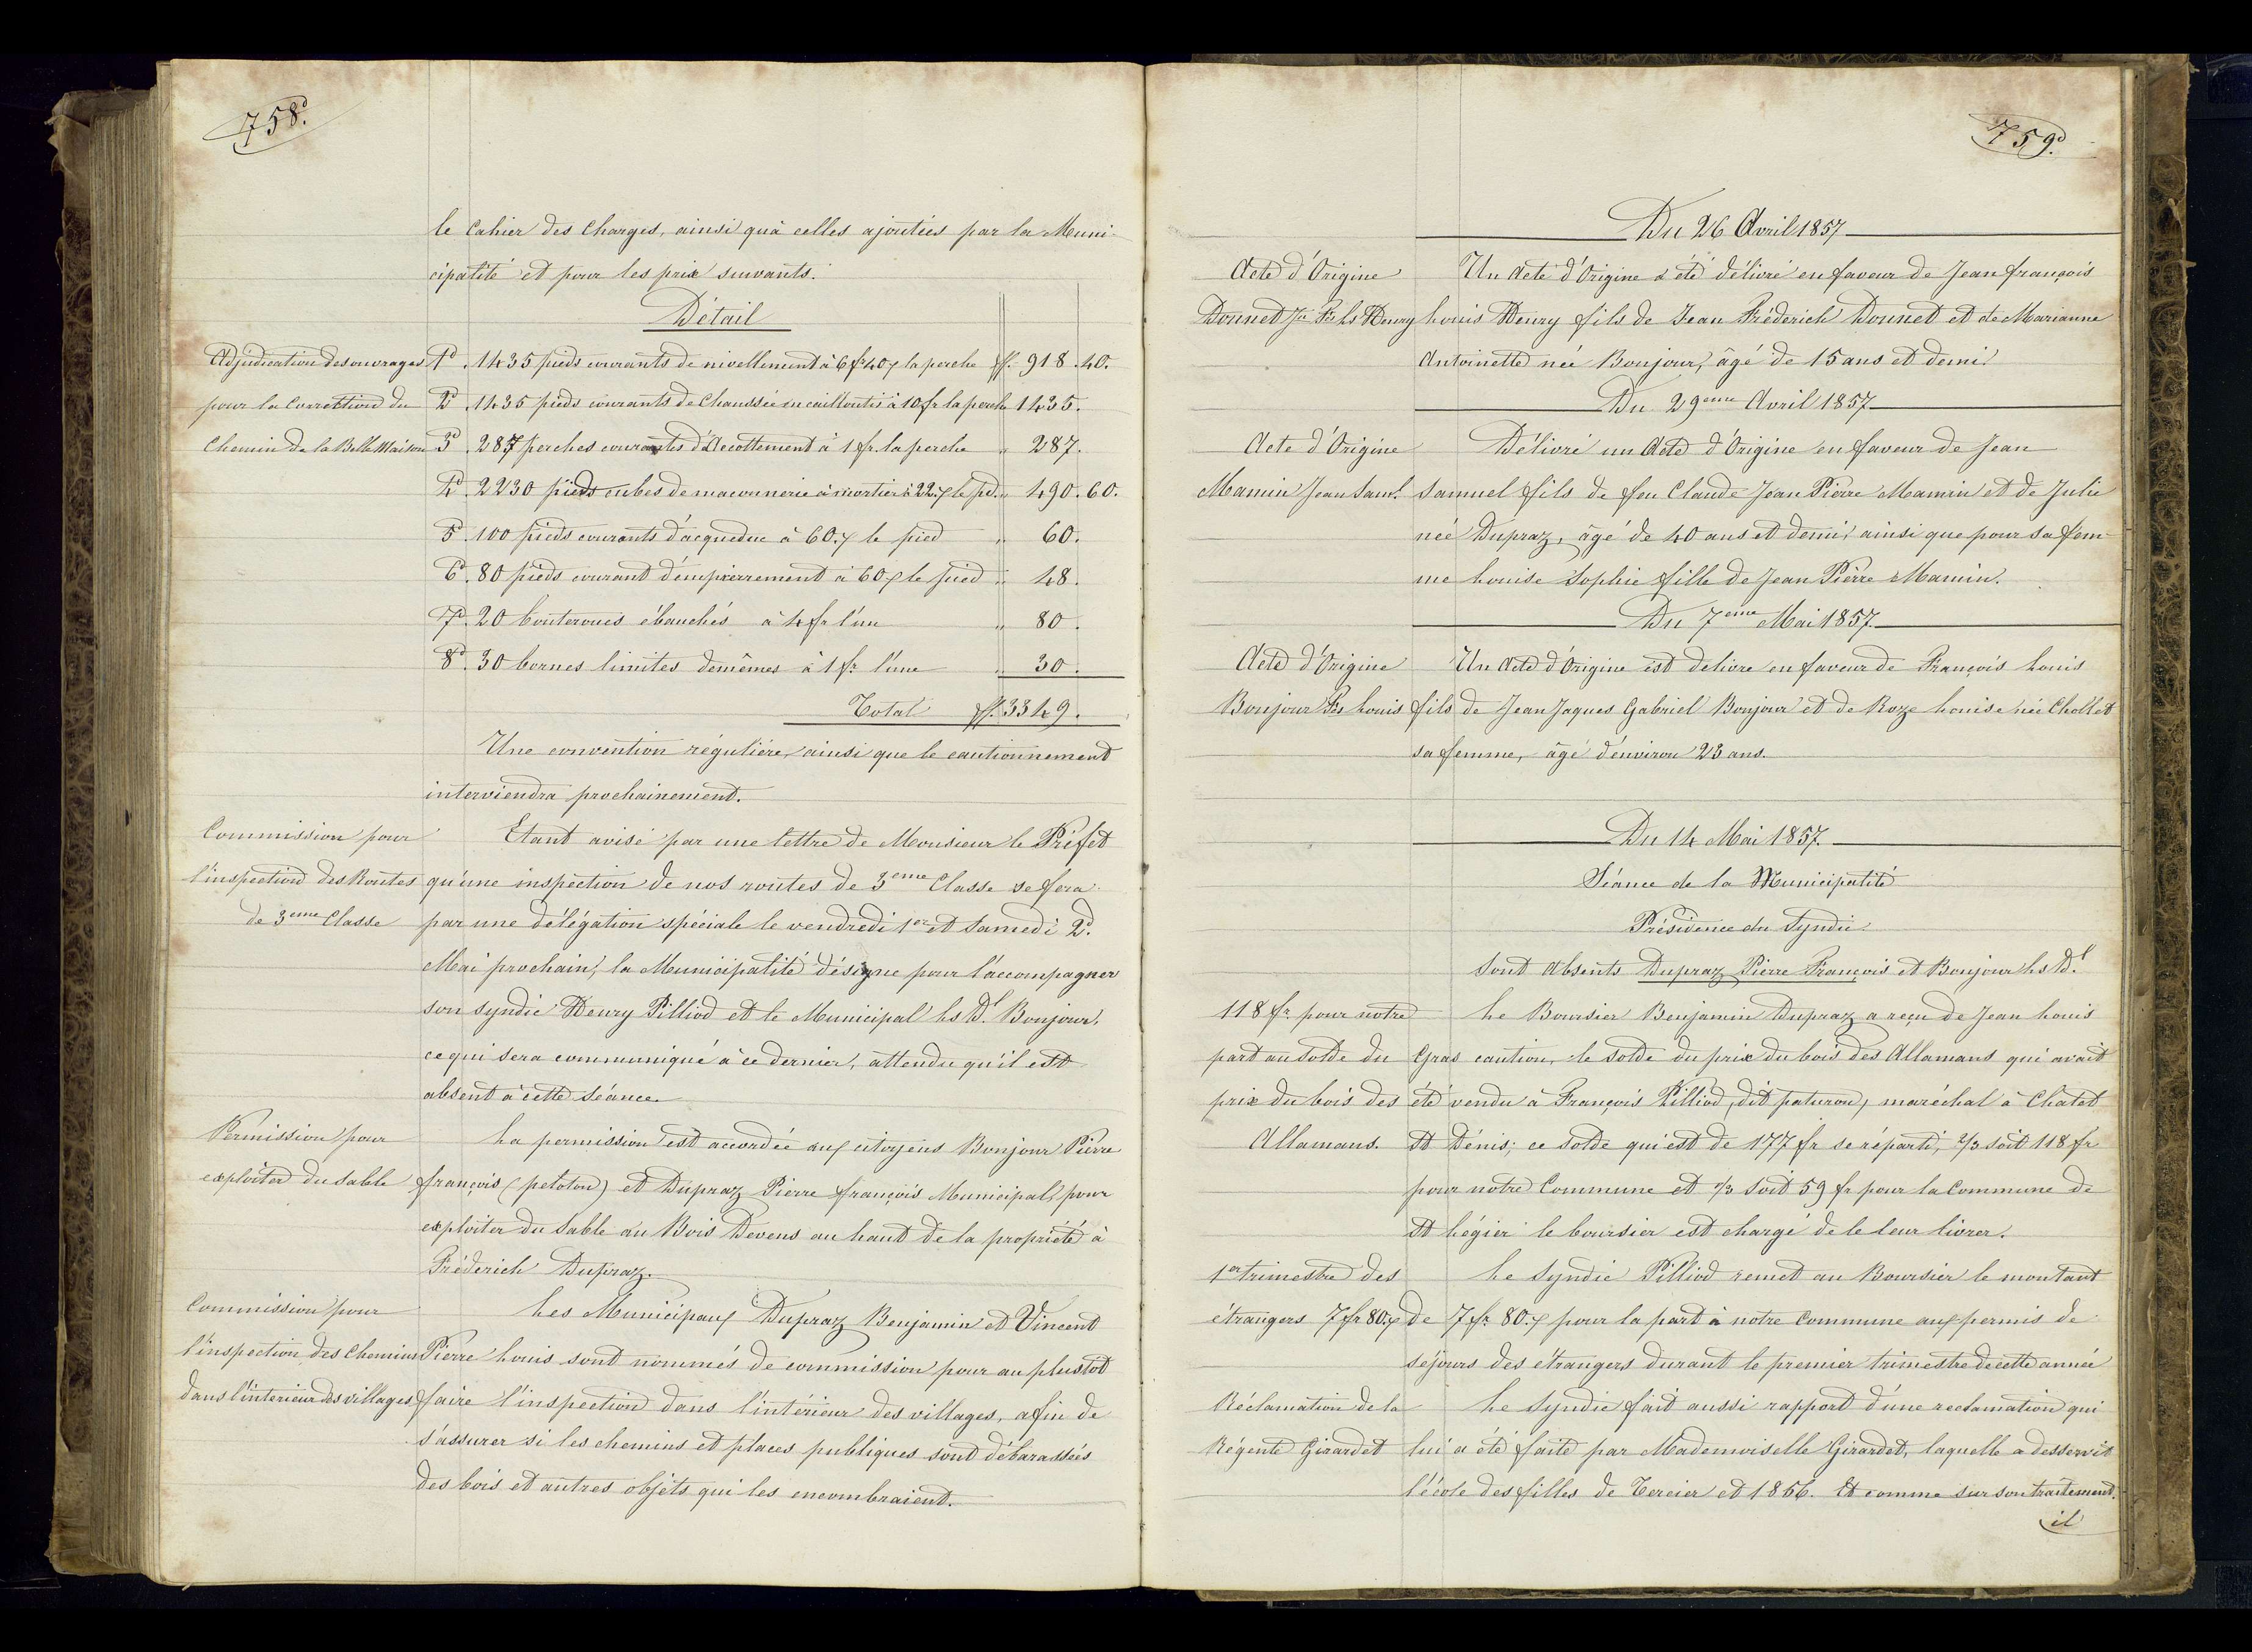 758.d
le Cahier des Charges, ainsi qu'à celles ajoutées par la Muni-
cipalité et pour les prix suivants.
Détail
Adjudication des ouvrages
pour la Correction du
Chemin de la Belle Maison
1.d 1435 pieds courants de nivellement à 6 fr 40 c la perche ff. 918.40.
2.d 1435 pieds courants de Chaussée en cailloutis à 10 fr la perche 1435.
3.d 287 perches courantes d'Accottement à 1 fr. la perche " 287.
4.d 2230 pieds cubes de maçonnerie à mortier à 22 c le pd. " 490.60.
5.d 100 pieds courants d'acqueduc à 60 c le pied " 60.
6.d 80 pieds courant d'empierrement à 60 c le pied " 48.
7.d 20 bouteroues ébauchés à 4 fr l'un " 80.
8.d 30 bornes limites demêmes à 1 fr. l'une " 30.
Total ff. 3349.
Une convention régulière, ainsi que le cautionnement
interviendra prochainement.
Commission pour
l'inspection des Routes
de 3eme Classe
Etant avisé par une lettre de Monsieur le Préfet
qu'une inspection de nos routes de 3eme Classe se fera
par une délégation spéciale le vendredi 1er et Samedi 2d.
Mai prochain, la Municipalité désigne pour l'accompagner
son syndic Henry Pilliod et le Municipal Ls Dl. Bonjour,
ce qui sera communiqué à ce dernier, attendu qu'il est
absent à cette Séance.
Permission pour
exploiter du sable
La permission est accordée aux citoyens Bonjour Pierre
françois (petoton) et Dupraz Pierre françois Municipal, pour
exploiter du Sable au Bois Devens au haut de la propriété à
Fréderich Dupraz.
Commission pour
l'inspection des Chemins
dans l'interieur des villages
Les Municipaux Dupraz Benjamin et Vincent
Pierre Louis sont nommés de commission pour au plustôt
faire l'inspection dans l'intérieur des villages, afin de
s'assurer si les chemins et places publiques sont débarassées
des bois et autres objets qui les encombraient.
759.d
Du 26 Avril 1857
Acte d'Origine
Donnet Jn Fs Ls Henry
Un Acte d'Origine a été délivré en faveur de Jean françois
Louis Henry fils de Jean Fréderich Donnet et de Marianne
Antoinette née Bonjour, âgé de 15 ans et demi.
Du 29eme Avril 1857
Acte d'Origine
Mamin Jean Saml.
Délivré un Acte d'Origine en faveur de Jean
Samuel fils de feu Claude Jean Pierre Mamin et de Julie
née Dupraz, âgé de 40 ans et demi, ainsi que pour sa fem-
me Louise Sophie fille de Jean Pierre Mamin.
Du 7eme Mai 1857
Acte d'Origine
Bonjour Fs Louis
Un Acte d'Origine est delivré en faveur de François Louis
fils de Jean Jaques Gabriel Bonjour et de Roze Louise née Chollet
sa femme, âgé d'environ 23 ans.
Du 14 Mai 1857.
Séance de la Municipalité
Présidence du Syndic
Sont Absents Dupraz Pierre François et Bonjour Ls Dl.
118 fr pour notre
part au solde du
prix du bois des
Allamans.
Le Boursier Benjamin Dupraz a reçu de Jean Louis
Gras caution, le solde du prix du bois des Allamans qui avait
été vendu à François Pilliod, dit paturon, maréchal à Chatel
St Dénis; ce solde qui est de 177 fr se réparti, 2/3 soit 118 fr
pour notre Commune et 1/3 soit 59 fr pour la Commune de
St Légier le boursier est chargé de le leur livrer.
1er trimestre des
étrangers 7 fr 80 c
Le Syndic Pilliod remet au Boursier le montant
de 7 fr. 80 c pour la part à notre Commune aux permis de
séjours des étrangers durant le premier trimestre de cette année
Réclamation de la
Régente Girardet
Le Syndic fait aussi rapport d'une reclamation qui
lui a été faite par Mademoiselle Girardet, laquelle a desservit
l'école des filles de Tercier et 1856. Et comme sur son traitement.
il